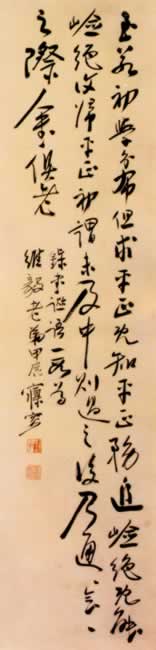 至如初學分布但求平正既知平正務追嶮絕既能
嶮絕復歸平正初謂未及中則過之後乃通〻會〻
之際人書俱老
錄書譜語一段為
維毅老弟甲辰